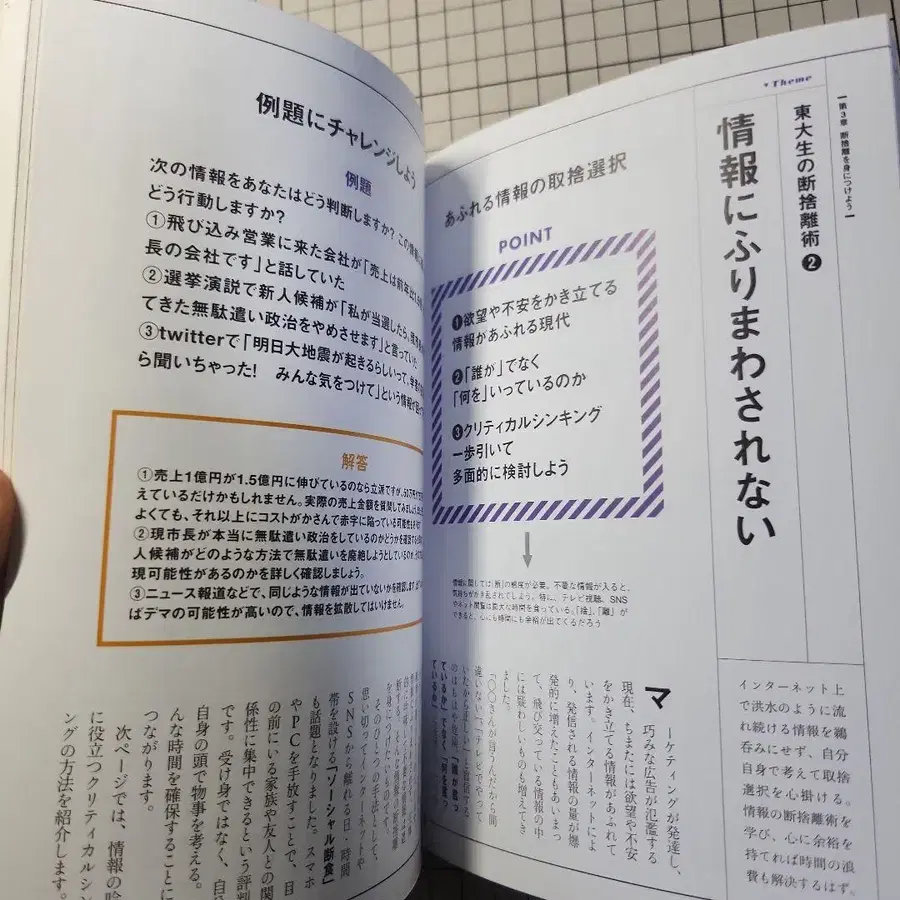 第3章 断捨離を身につけよう
▼Theme
東大生の断捨離術❷
情報にふりまわされない
インターネット上
で洪水のように流
れ続ける情報を鵜
呑みにせず、自分
自身で考えて取捨
選択を心掛ける。
情報の断捨離術を
学び、心に余裕を
持てれば時間の浪
費も解決するはず。
あふれる情報の取捨選択
POINT
❶欲望や不安をかき立てる
情報があふれる現代
❷「誰が」でなく
「何を」いっているのか
❸クリティカルシンキング
一歩引いて
多面的に検討しよう
情報に関しては「断」の態度が必要。不要な情報が入ると、
気持ちがかき乱されてしまう。特に、テレビ視聴、SNS
やネット閲覧は膨大な時間を食っている。「捨」、「離」が
できると、心にも時間にも余裕が出てくるだろう
マーケティングが発達し、
巧みな広告が氾濫する
現在、ちまたには欲望や不安
をかき立てる情報があふれて
います。インターネットによ
り、発信される情報の量が爆
発的に増えたこともあいまっ
て、飛び交っている情報の中
には疑わしいものも増えてき
ました。
「〇〇さんが言うんだから間
違いない」「テレビでやって
例題にチャレンジしよう
例題
次の情報をあなたはどう判断しますか? この情報
どう行動しますか?
①飛び込み営業に来た会社が「売上は前年比
長の会社です」と話していた
②選挙演説で新人候補が「私が当選したら、現市
てきた無駄遣い政治をやめさせます」と言っていた
③twitterで「明日大地震が起きるらしいって、学
ら聞いちゃった! みんな気をつけて」という情報が
解答
①売上1億円が1.5億円に伸びているのなら立派ですが、
えているだけかもしれません。実際の売上金額を質問してみましょう。
よくても、それ以上にコストがかさんで赤字に陥っている可能性も
②現市長が本当に無駄遣い政治をしているのかどうかを確認する
人候補がどのような方法で無駄遣いを廃絶しようとしているのか、
現可能性があるのかを詳しく確認しましょう。
③ニュース報道などで、同じような情報が出ていないかを確認します。
ばデマの可能性が高いので、情報を拡散してはいけません。
そのひとつの手法として、
思い切ってインターネットや
SNSから離れる日・時間
帯を設ける「ソーシャル断食」
も話題となりました。スマホ
やPCを手放すことで、目
の前にいる家族や友人との関
係性に集中できるという評判
です。受け身ではなく、自
自身の頭で物事を考える。
んな時間を確保することに
つながります。
次ページでは、情報の
に役立つクリティカルシン
ングの方法を紹介します。